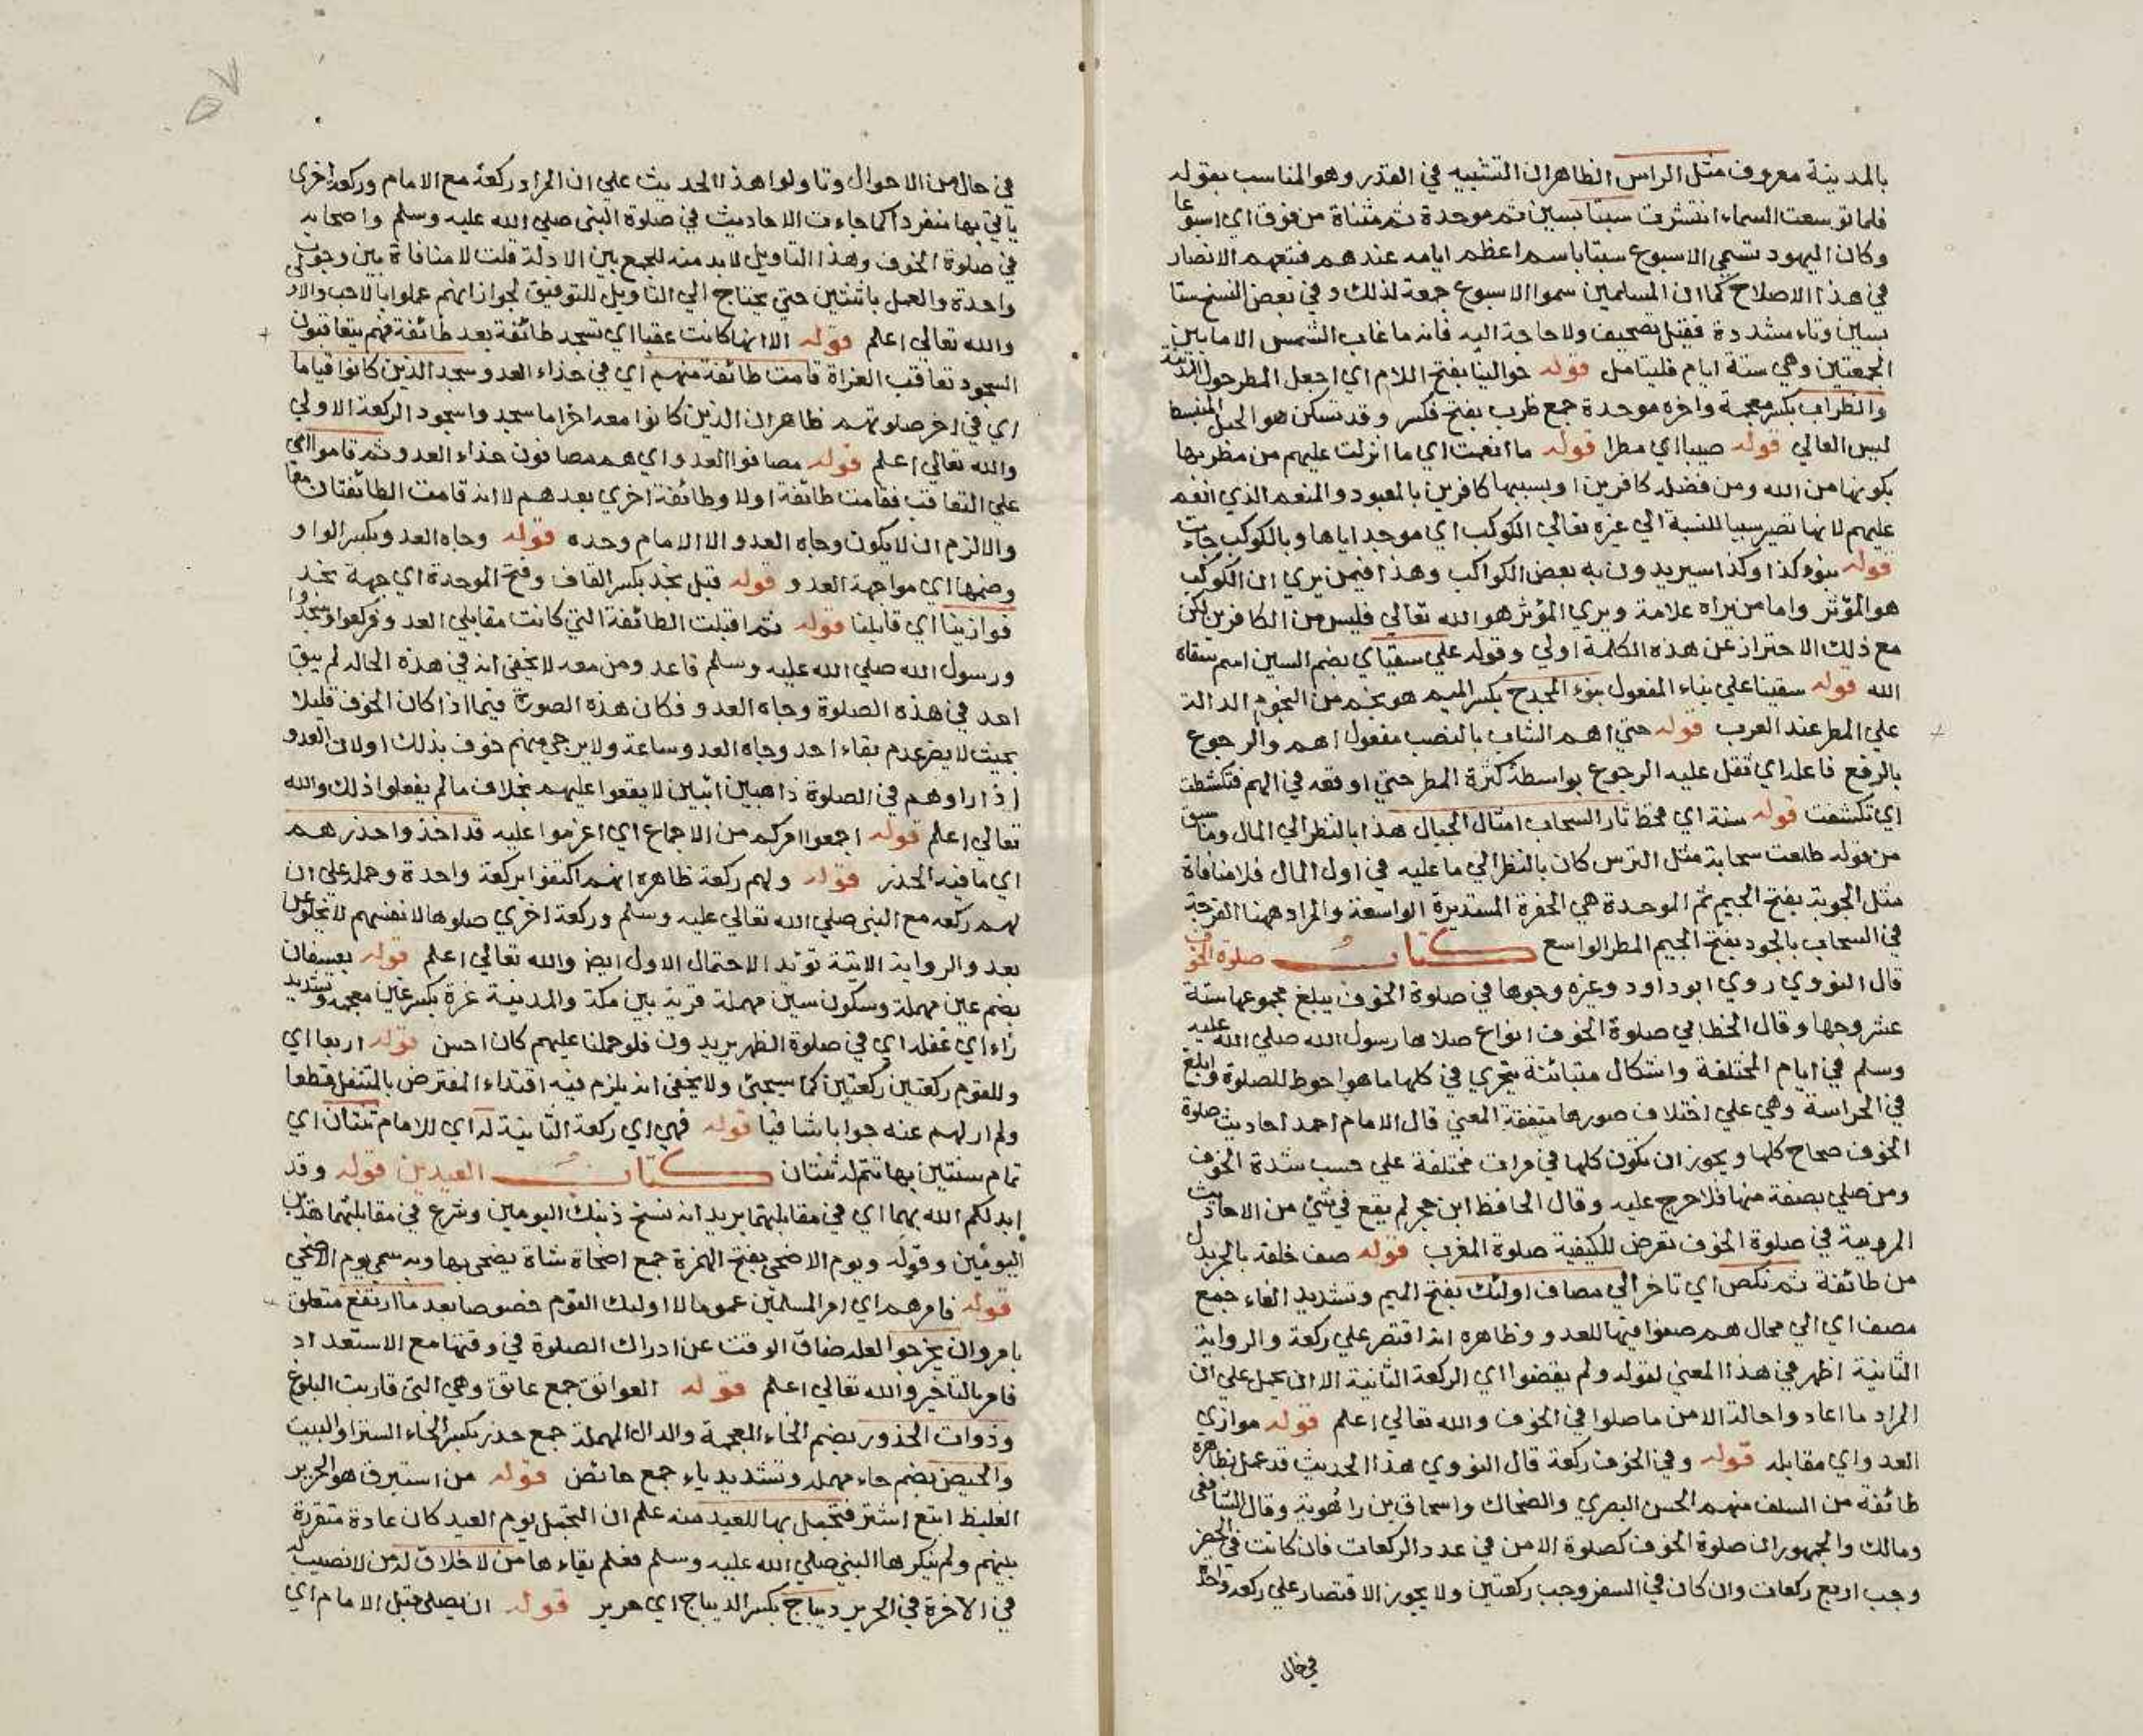 بالمدينة معروف مثل الراس الظاهر ان التشبيه في القدر وهو المناسب بقوله
فلما توسعت السماء انتشرت سبتا بسين ثم موحدة ثم مثناة من فوق اي اسبوعا
وكان اليهود تسمي الاسبوع سبتا باسم اعظم ايامه عندهم فتبعهم الانصار
في هذا الاصلاح كما ان المسلمين سموا الاسبوع جمعة لذلك وفي بعض النسخ ستا
بسين وتاء مشددة فقيل تصحيف ولا حاجة اليه فانه ما غاب الشمس الا ما بين
الجمعتين وهي ستة ايام فليتامل قوله حوالينا بفتح اللام اي اجعل المطر حول المدينة
والظراب بكسر معجمة واخره موحدة جمع ظرب بفتح فكسر وقد تسكن هو الجبل المنبسط
ليس العالي قوله صيبا اي مطرا قوله ما انعمت اي ما انزلت عليهم من مطر بها
بكونها من الله ومن فضله كافرين او بسببها كافرين بالمعبود والمنعم الذي انعم
عليهم لانها تصير سببا للنسبة الي غيره تعالي الكوكب اي موجد اياها وبالكوكب جاءت
قوله بنوء كذا وكذا سيريدون به بعض الكواكب وهذا فيمن يري ان الكوكب
هو المؤثر واما من يراه علامة ويري المؤثر هو الله تعالي فليس من الكافرين لكن
مع ذلك الاحتراز عن هذه الكلمة اولي وقوله علي سقياي بضم السين اسم سقاه
الله قوله سقينا علي بناء المفعول بنوء المجدح بكسر الميم هو نجم من النجوم الدالة
علي المطر عند العرب قوله حتي اهم الشاب بالنصب مفعول اهم والرجوع
بالرفع فاعله اي ثقل عليه الرجوع بواسطة كثرة المطر حتي اوقعه في الهم فتكشطت
اي تكشفت قوله سنة اي قحط ثار السحاب امثال الجبال هذا بالنظر الي المال وما سبق
من قوله طلعت سحابة مثل الترس كان بالنظر الي ما عليه في اول المال فلا منافاة
مثل الجوبة بفتح الجيم ثم الموحدة هي الحفرة المستديرة الواسعة والمراد ههنا الفرجة
في السحاب بالجود بفتح الجيم المطر الواسع كتاب صلوة الخوف
قال النووي روي ابوداود وغيره وجوها في صلوة الخوف يبلغ مجموعها ستة
عشر وجها وقال الخطابي صلوة الخوف انواع صلاها رسول الله صلي الله عليه
وسلم في ايام المختلفة واشكال متبائنة يتحري في كلها ما هو احوط للصلوة وابلغ
في الحراسة وهي علي اختلاف صورها متفقة المعني قال الامام احمد احاديث صلوة
الخوف صحاح كلها ويجوز ان تكون كلها في مرات مختلفة علي حسب شدة الخوف
ومن صلي بصفة منها فلا حرج عليه وقال الحافظ ابن حجر لم يقع في شئ من الاحاديث
المروية في صلوة الخوف تعرض للكيفية صلوة المغرب قوله صف خلفه بالجر بدل
من طائفة ثم نكص اي تاخر الي مصاف اولئك بفتح الميم وتشديد الفاء جمع
مصف اي الي محال هم صفوا فيها للعدو وظاهره انه اقتصر علي ركعة والرواية
الثانية اظهر في هذا المعني لقوله ولم يقضوا اي الركعة الثانية الا ان يحمل علي ان
المراد ما اعادوا حالة الامن ما صلوا في الخوف والله تعالي اعلم قوله موازي
العدو اي مقابله قوله وفي الخوف ركعة قال النووي هذا الحديث قد عمل بظاهره
طائفة من السلف منهم الحسن البصري والضحاك واسحاق بن راهوية وقال الشافعي
ومالك والجمهور ان صلوة الخوف كصلوة الامن في عدد الركعات فان كانت في الحضر
وجب اربع ركعات وان كان في السفر وجب ركعتين ولا يجوز الاقتصار علي ركعة واحدة
في حال
٥٧
في حال من الاحوال وتاولوا هذا الحديث علي ان المراد ركعة مع الامام وركعة اخري
ياتي بها منفردا كما جاءت الاحاديث في صلوة النبي صلي الله عليه وسلم واصحابه
في صلوة الخوف وهذا التاويل لابد منه للجمع بين الادلة قلت لا منافاة بين وجوب
واحدة والعمل باثنتين حتي يحتاج الي التاويل للتوفيق لجواز انهم عملوا بالاحب والاولي
والله تعالي اعلم قوله الا انها كانت عقبا اي تسجد طائفة بعد طائفة فهم يتعاقبون
السجود تعاقب الغزاة قامت طائفة منهم اي في حذاء العدو سجد الذين كانوا قياما
اي في اخر صلوتهم ظاهر ان الذين كانوا معه اخرا ما سجدوا سجود الركعة الاولي
والله تعالي اعلم قوله مصافوا العدو اي هم مصافون حذاء العدو ثم قاموا اي
علي التعاقب فقامت طائفة اولا وطائفة اخري بعدهم لا انه قامت الطائفتان معا
والا لزم ان لا يكون وجاه العدو الا الامام وحده قوله وجاه العدو بكسر الواو
وضمها اي مواجهة العدو قوله قبل نجد بكسر القاف وفتح الموحدة اي جهة نجد
فوازينا اي قابلنا قوله ثم اقبلت الطائفة التي كانت مقابلي العدو فركعوا وسجدوا
ورسول الله صلي الله عليه وسلم قاعد ومن معه لا يخفي انه في هذه الحالة لم يبق
احد في هذه الصلوة وجاه العدو فكان هذه الصورة فيما اذا كان الخوف قليلا
بحيث لا يضر عدم بقاء احد وجاه العدو ساعة ولا يرجي منهم خوف بذلك اولان العدو
اذا راوهم في الصلوة ذاهبين اتيين لا يقعوا عليهم بخلاف ما لم يفعلوا ذلك والله
تعالي اعلم قوله اجمعوا امركم من الاجماع اي اعزموا عليه قد اخذوا حذرهم
اي ما فيه الحذر قوله ولهم ركعة ظاهره انهم اكتفوا بركعة واحدة وحمله علي ان
لهم ركعة مع النبي صلي الله تعالي عليه وسلم وركعة اخري صلوها لانفسهم لا يخلو عن
بعد والرواية الاتية تؤيد الاحتمال الاول ايضا والله تعالي اعلم قوله بعسفان
بضم عين مهملة وسكون سين مهملة قرية بين مكة والمدينة غرة بكسر غين معجمة وتشديد
راء اي غفلة اي في صلوة الظهر يريدون فلو حملنا عليهم كان احسن قوله اربعا اي
وللقوم ركعتين ركعتين كما سيجئ ولا يخفي انه يلزم فيه اقتداء المفترض بالمتنفل قطعا
ولم ار لهم عنه جوابا شافيا قوله فهي اي ركعة الثانية له اي للامام ثنتان اي
تمام سنتين بها تتم له ثنتان كتاب العيدين قوله وقد
ابدلكم الله بهما اي في مقابلتهما يريد انه نسخ ذينك اليومين وشرع في مقابلتهما هذين
اليومين وقوله ويوم الاضحي بفتح الهمزة جمع اضحاة شاة يضحي بها وبه سمي يوم الاضحي
قوله فامرهم اي امر المسلمين عموما لا اولئك القوم خصوصا بعد ما ارتفع متعلق
بامر وان يخرجوا لعله ضاق الوقت عن ادراك الصلوة في وقتها مع الاستعداد
فامر بالتاخير والله تعالي اعلم قوله العواتق جمع عاتق وهي التي قاربت البلوغ
وذوات الخدور بضم الخاء المعجمة والدال المهملة جمع خدر بكسر الخاء الستر او البيت
والحيض بضم حاء مهملة وتشديد ياء جمع حائض قوله من استبرق هو الحرير
الغليظ ابتع اشتر فتجمل بها للعيد منه علم ان التجمل يوم العيد كان عادة متقررة
بينهم ولم ينكرها النبي صلي الله عليه وسلم فعلم بقاءها من لا خلاق له من لا نصيب له
في الاخرة في الحرير ديباج بكسر الديباج اي حرير قوله ان يصلي قبل الامام اي